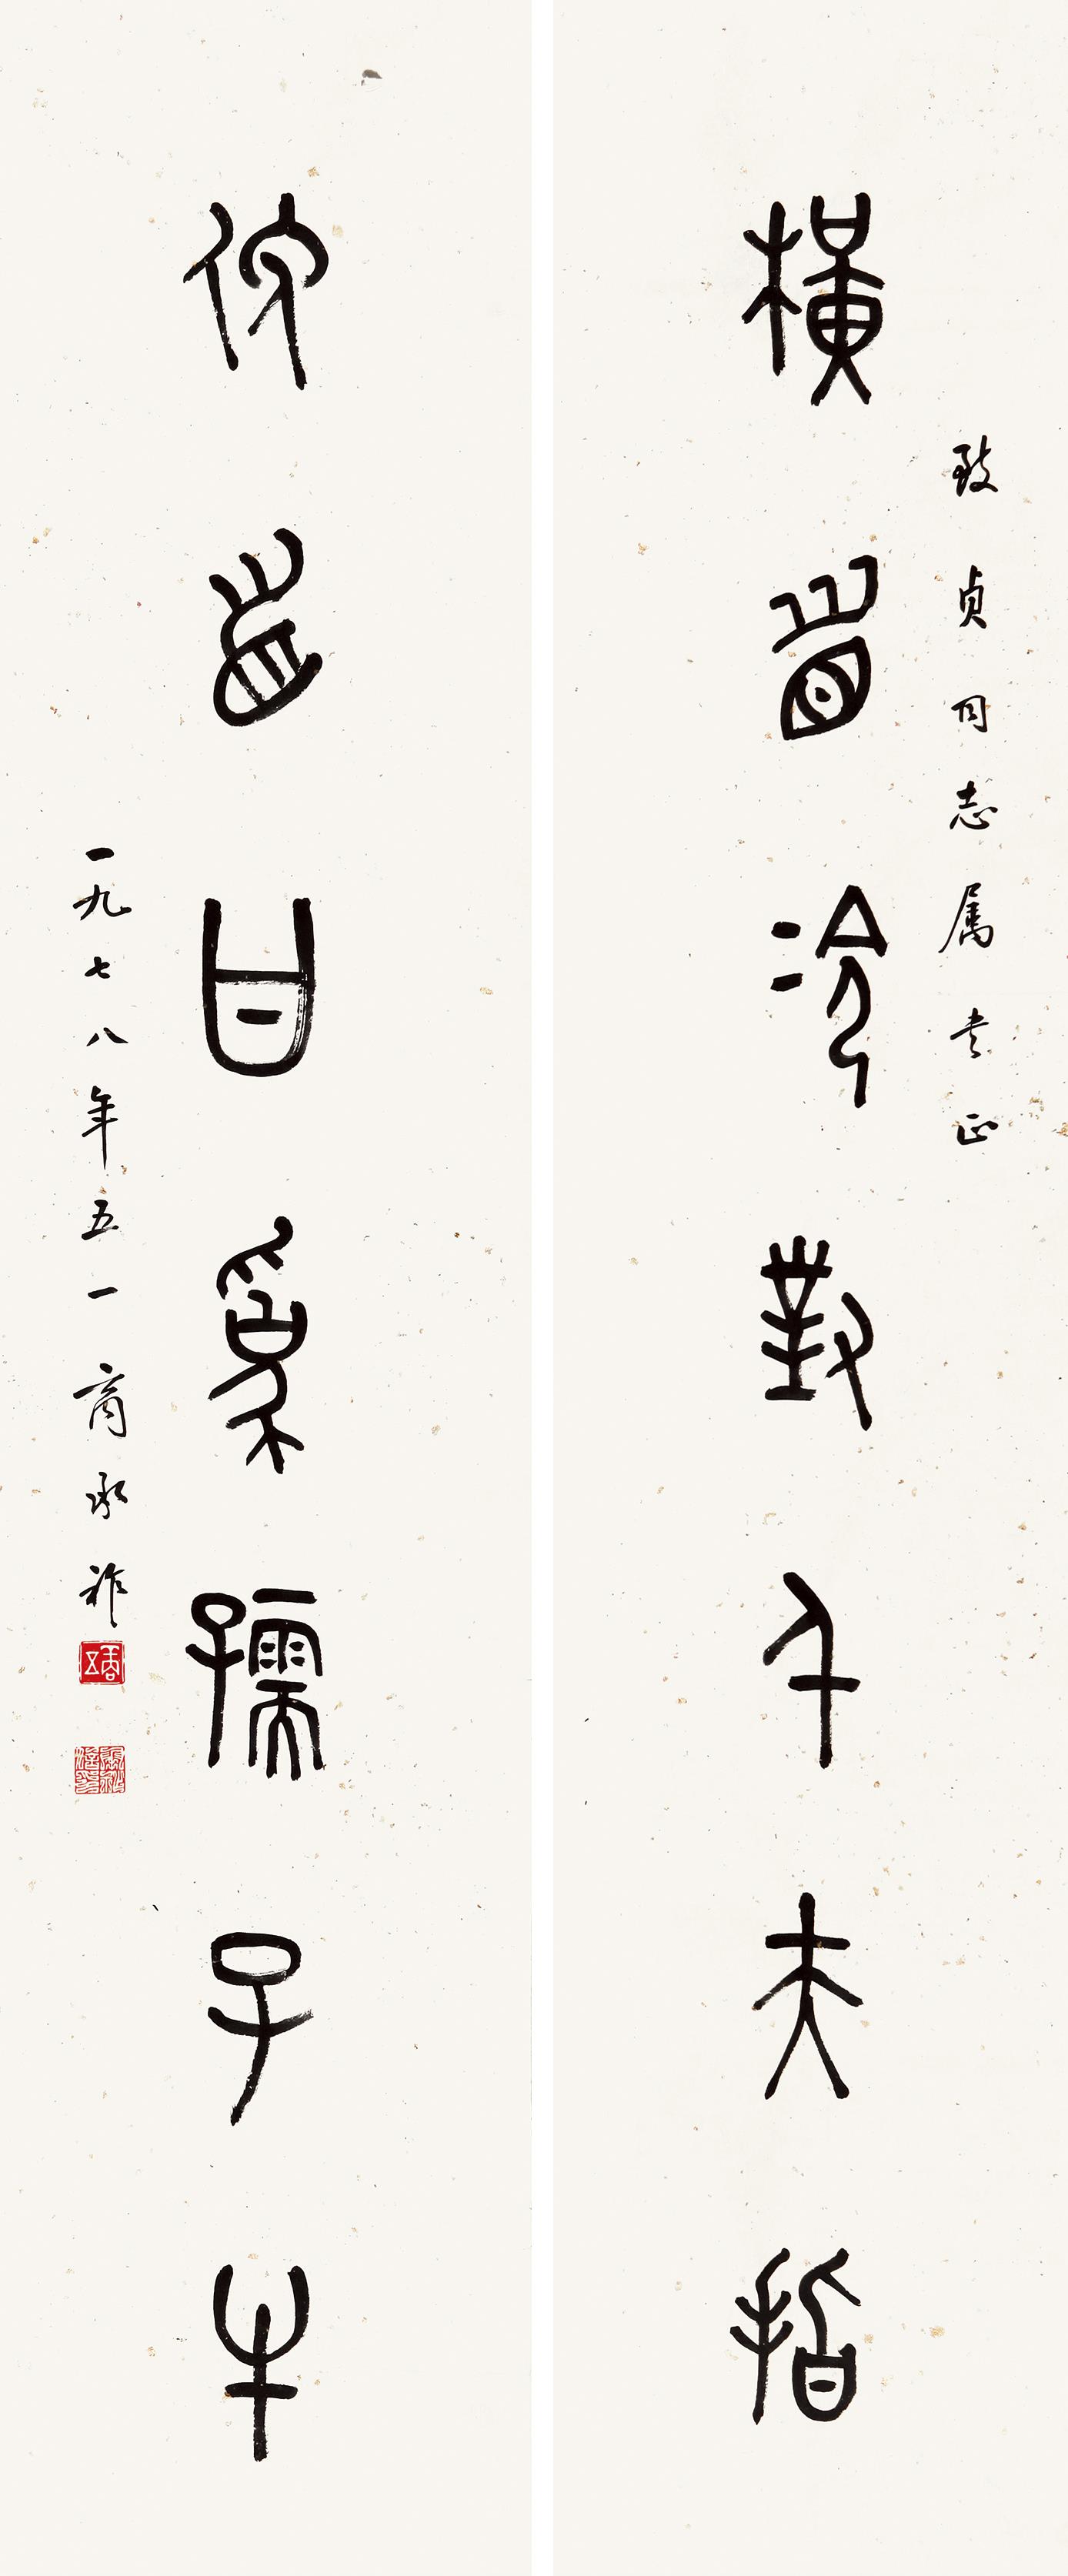 橫眉冷對千夫指
致貞同志属书正
俯首甘為孺子牛
一九七八年五一商承祚